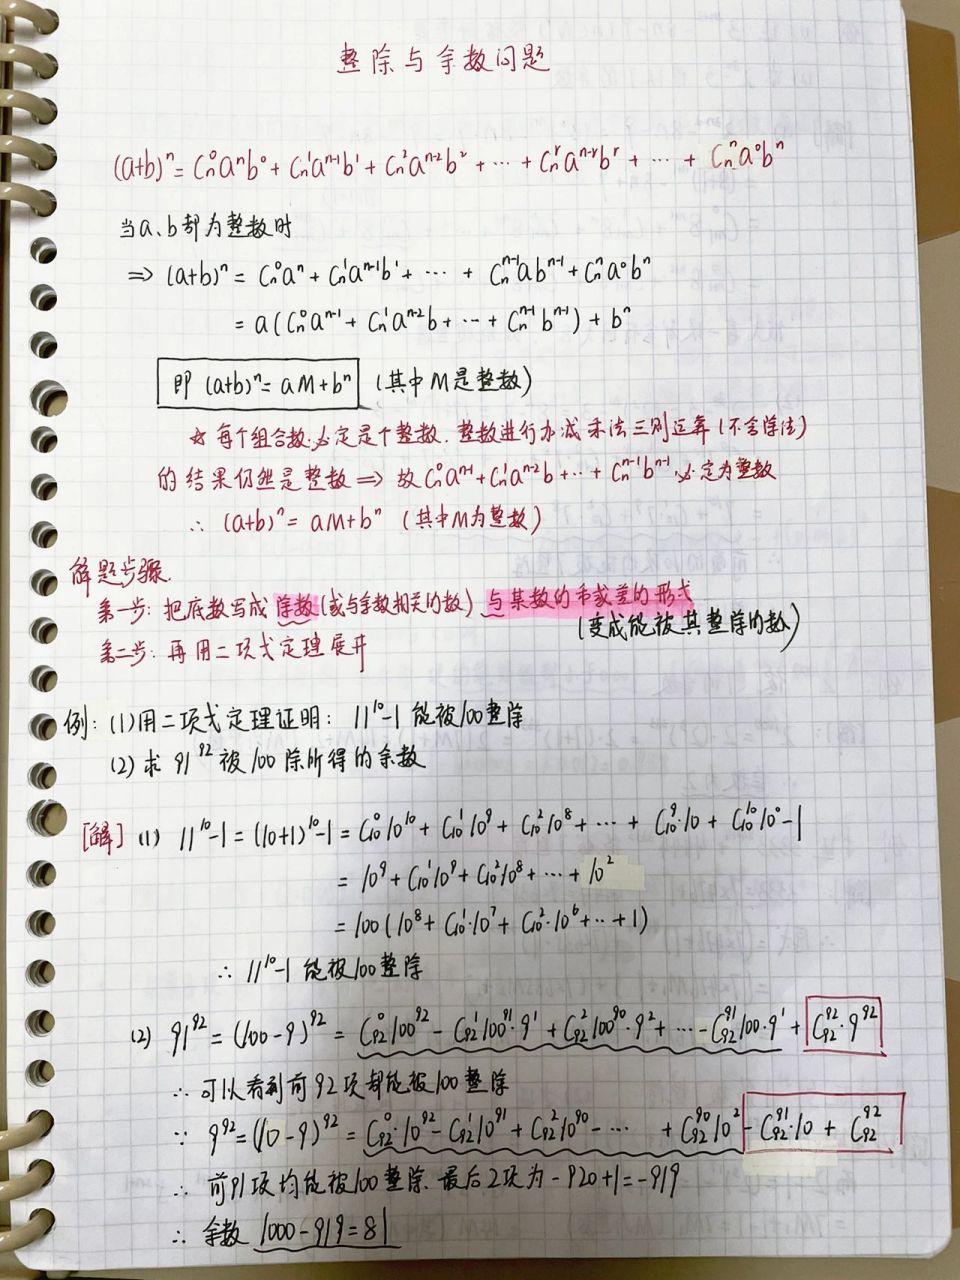 整除与余数问题
(a+b)ⁿ = Cₙ⁰aⁿb⁰ + Cₙ¹aⁿ⁻¹b¹ + Cₙ²aⁿ⁻²b² + ⋯ + Cₙʳaⁿ⁻ʳbʳ + ⋯ + Cₙⁿa⁰bⁿ
当a、b都为整数时
⇒ (a+b)ⁿ = Cₙ⁰aⁿ + Cₙ¹aⁿ⁻¹b¹ + ⋯ + Cₙⁿ⁻¹abⁿ⁻¹ + Cₙⁿa⁰bⁿ
= a(Cₙ⁰aⁿ⁻¹ + Cₙ¹aⁿ⁻²b + ⋯ + Cₙⁿ⁻¹bⁿ⁻¹) + bⁿ
即 (a+b)ⁿ = aM + bⁿ (其中M是整数)
☆ 每个组合数必定是个整数. 整数进行加减乘法三则运算(不含除法)
的结果仍然是整数 ⇒ 故Cₙ⁰aⁿ⁻¹ + Cₙ¹aⁿ⁻²b + ⋯ + Cₙⁿ⁻¹bⁿ⁻¹ 必定为整数
∴ (a+b)ⁿ = aM + bⁿ (其中M为整数)
解题步骤.
第一步: 把底数写成 除数(或与除数相关的数) 与某数的和或差的形式
(变成能被其整除的数)
第二步: 再用二项式定理展开
例: (1) 用二项式定理证明: 11¹⁰-1 能被100整除
(2) 求 91⁹² 被100除所得的余数
[解] (1) 11¹⁰-1 = (10+1)¹⁰-1 = C₁₀⁰10¹⁰ + C₁₀¹10⁹ + C₁₀²10⁸ + ⋯ + C₁₀⁹·10 + C₁₀¹⁰10⁰-1
= 10⁹ + C₁₀¹10⁹ + C₁₀²10⁸ + ⋯ + 10²
= 100(10⁸ + C₁₀¹·10⁷ + C₁₀²·10⁶ + ⋯ + 1)
∴ 11¹⁰-1 能被100整除
(2) 91⁹² = (100-9)⁹² = C₉₂⁰100⁹² - C₉₂¹100⁹¹·9¹ + C₉₂²100⁹⁰·9² + ⋯ - C₉₂⁹¹100·9¹ + C₉₂⁹²·9⁹²
∴ 可以看到前92项都能被100整除
∵ 9⁹² = (10-9)⁹² = C₉₂⁰·10⁹² - C₉₂¹10⁹¹ + C₉₂²10⁹⁰ - ⋯ + C₉₂⁹⁰10² - C₉₂⁹¹·10 + C₉₂⁹²
∴ 前91项均能被100整除. 最后2项为 -920+1=-919
∴ 余数 1000-919=81